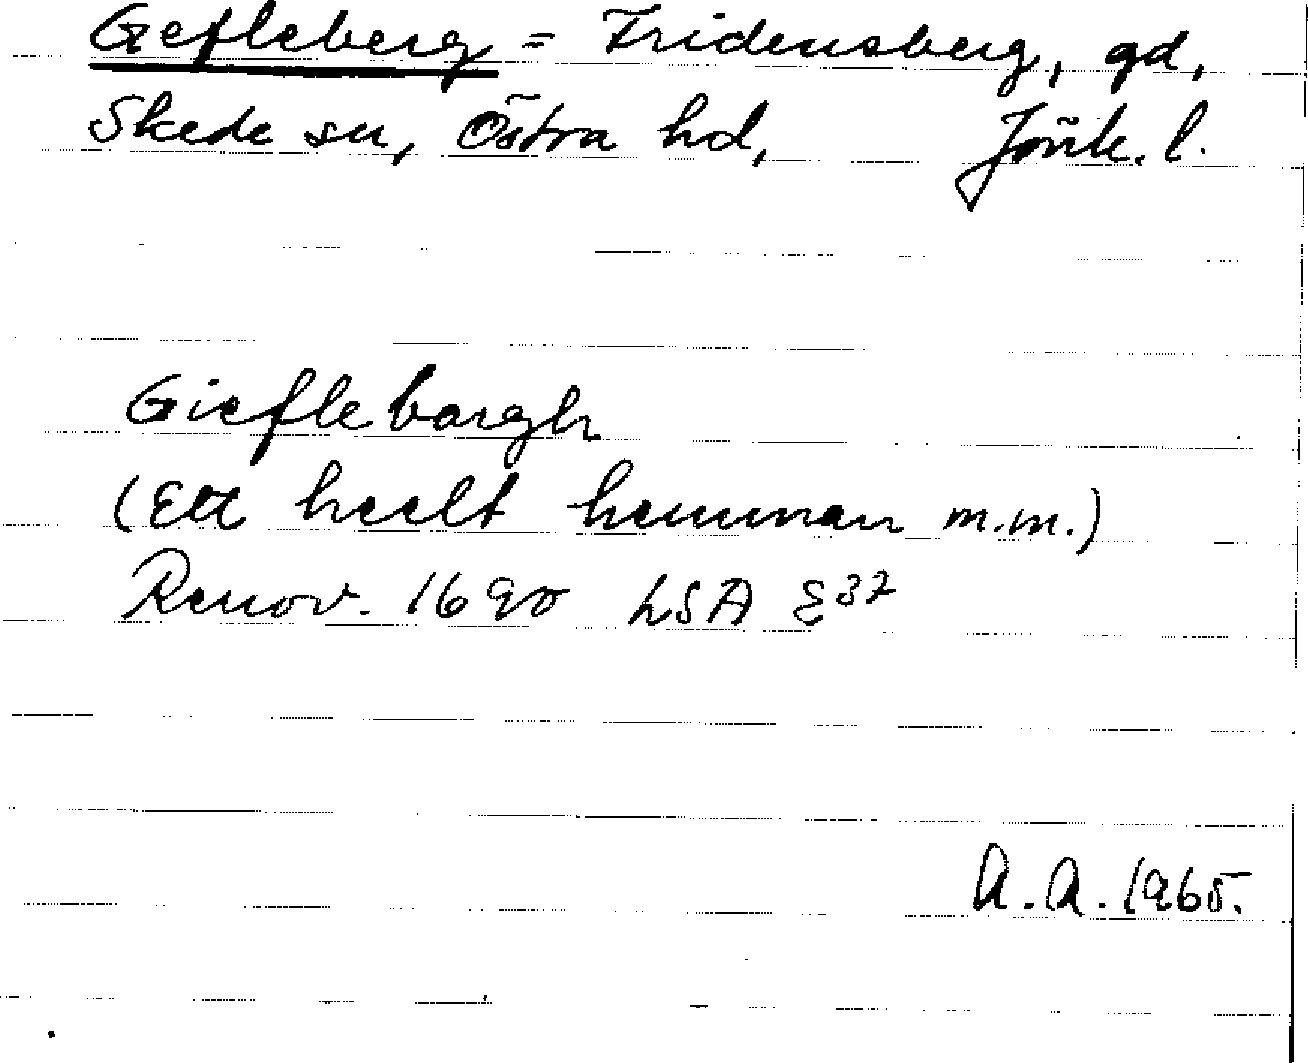 Gefleberg = Fridensberg, gd,
Skede sn, Östra hd, Jönk. l.
Gieflebargh
(Ett heelt hemman m.m.)
Renov. 1690 LSA E37
A.A. 1965.